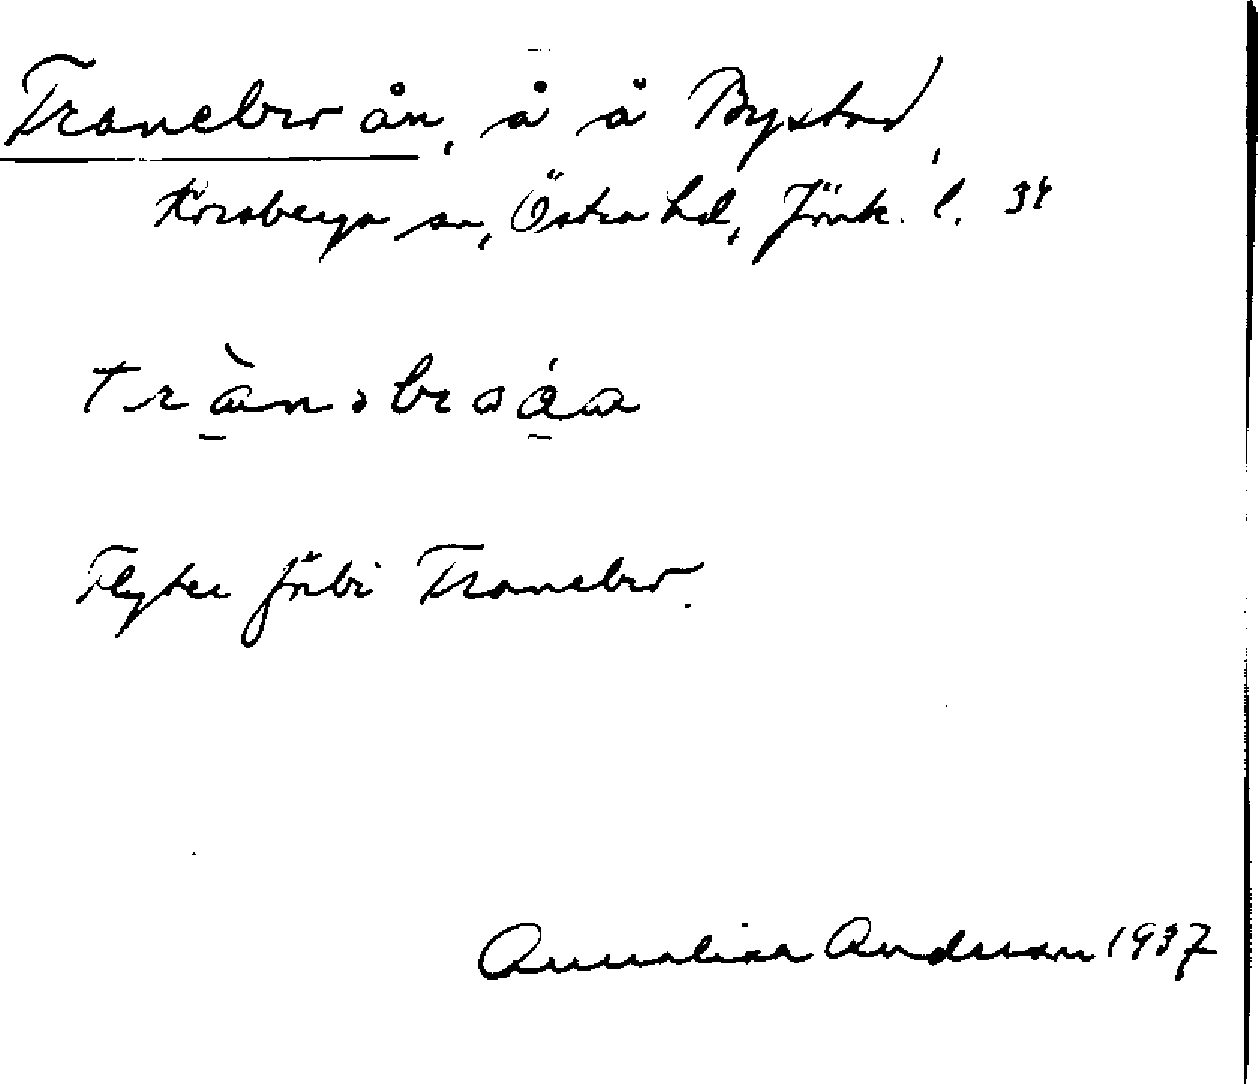 Tranebro ån, å å Bystad,
Korsberga sn, Östra hd, Jönk. l. 34
Flyter förbi Tranebro.
Annalisa Anderson 1937